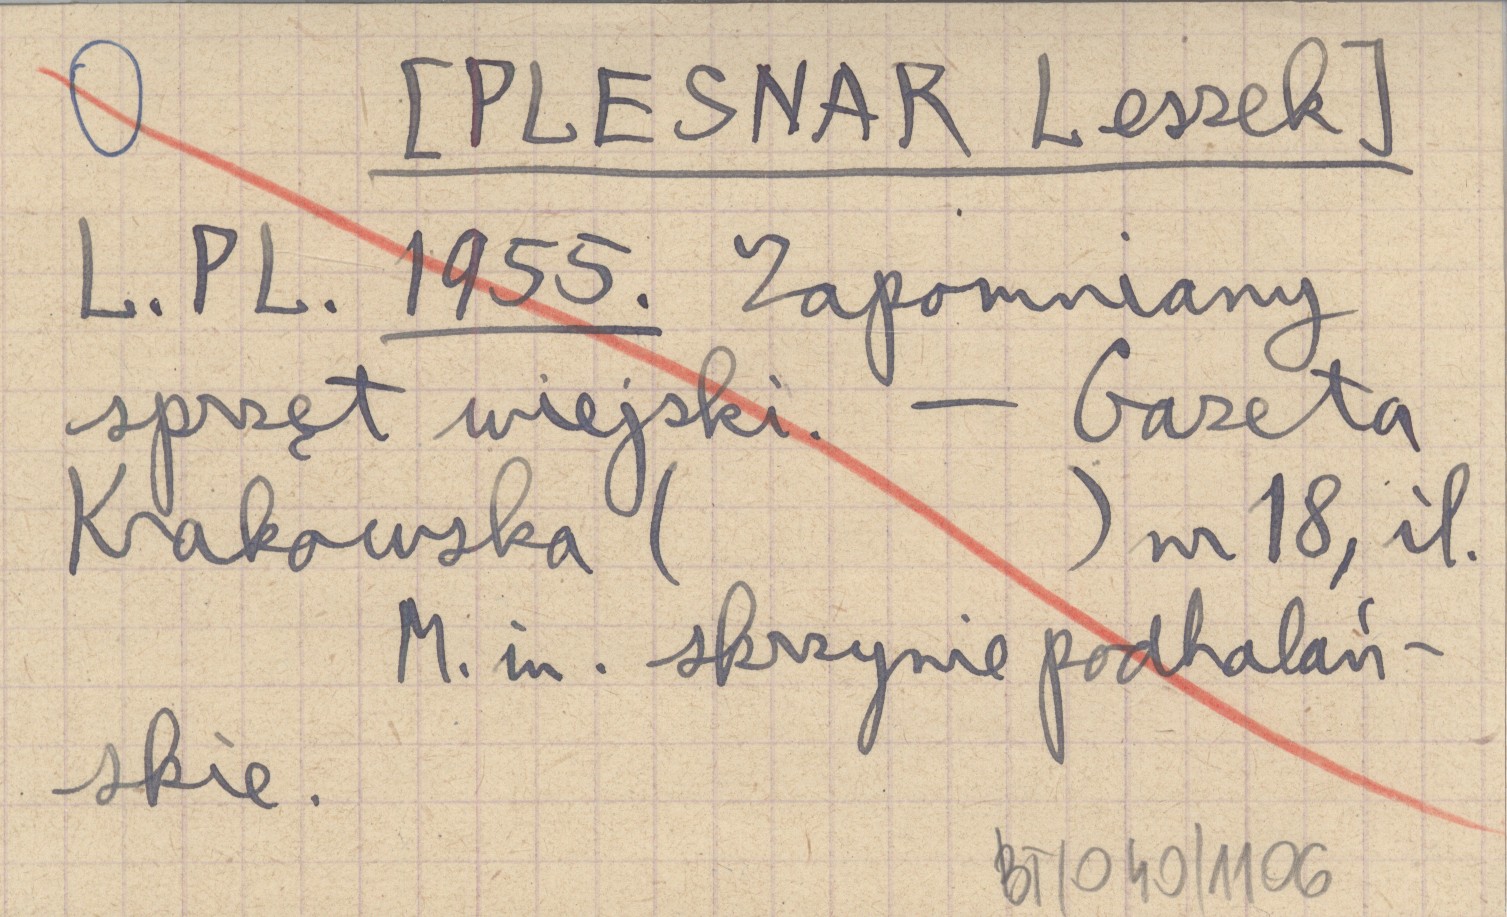 [PLESNAR Leszek]
L. PL. 1955. Zapomniany
sprzęt wiejski. — Gazeta
Krakowska ( ) nr 18, il.
M. in. skrzynie podhalań-
skie.
BT/040/1106